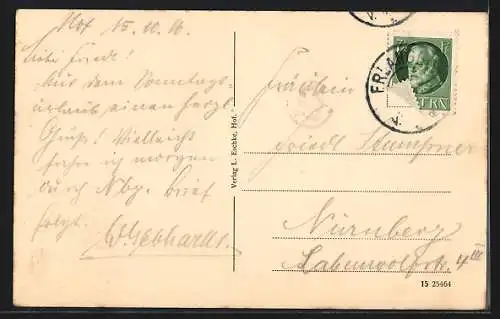 Hof 15.10.16
Liebe Friedl!
Aus dem Sonntags-
urlaub einen herzl.
Gruß! Vielleicht
fahre ich morgen
durch Nbg. Brief
folgt.
W. Gebhardt.
Verlag L. Eschke, Hof.
ERLA
Fräulein
Friedl Stumpner
Nürnberg
Labenwolfstr. 4 III
15 25464